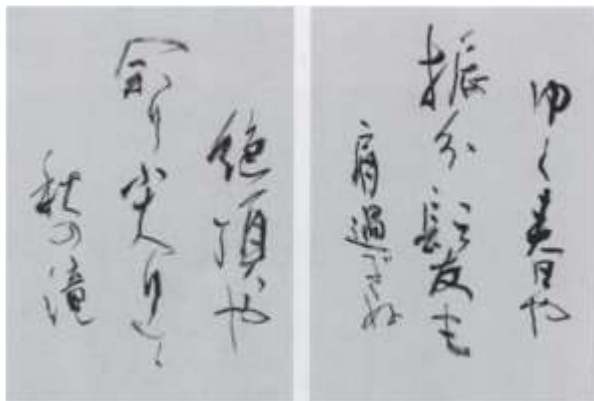 ゆく春や
振分髪も
肩過ぎぬ
絶頂や
尖り
秋の滝